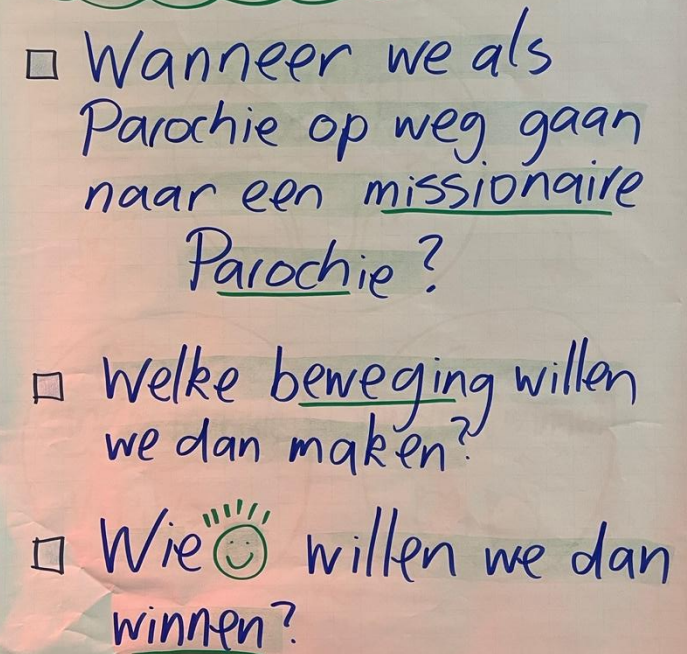 Wanneer we als
Parochie op weg gaan
naar een missionaire
Parochie?
Welke beweging willen
we dan maken?
Wie willen we dan
winnen?